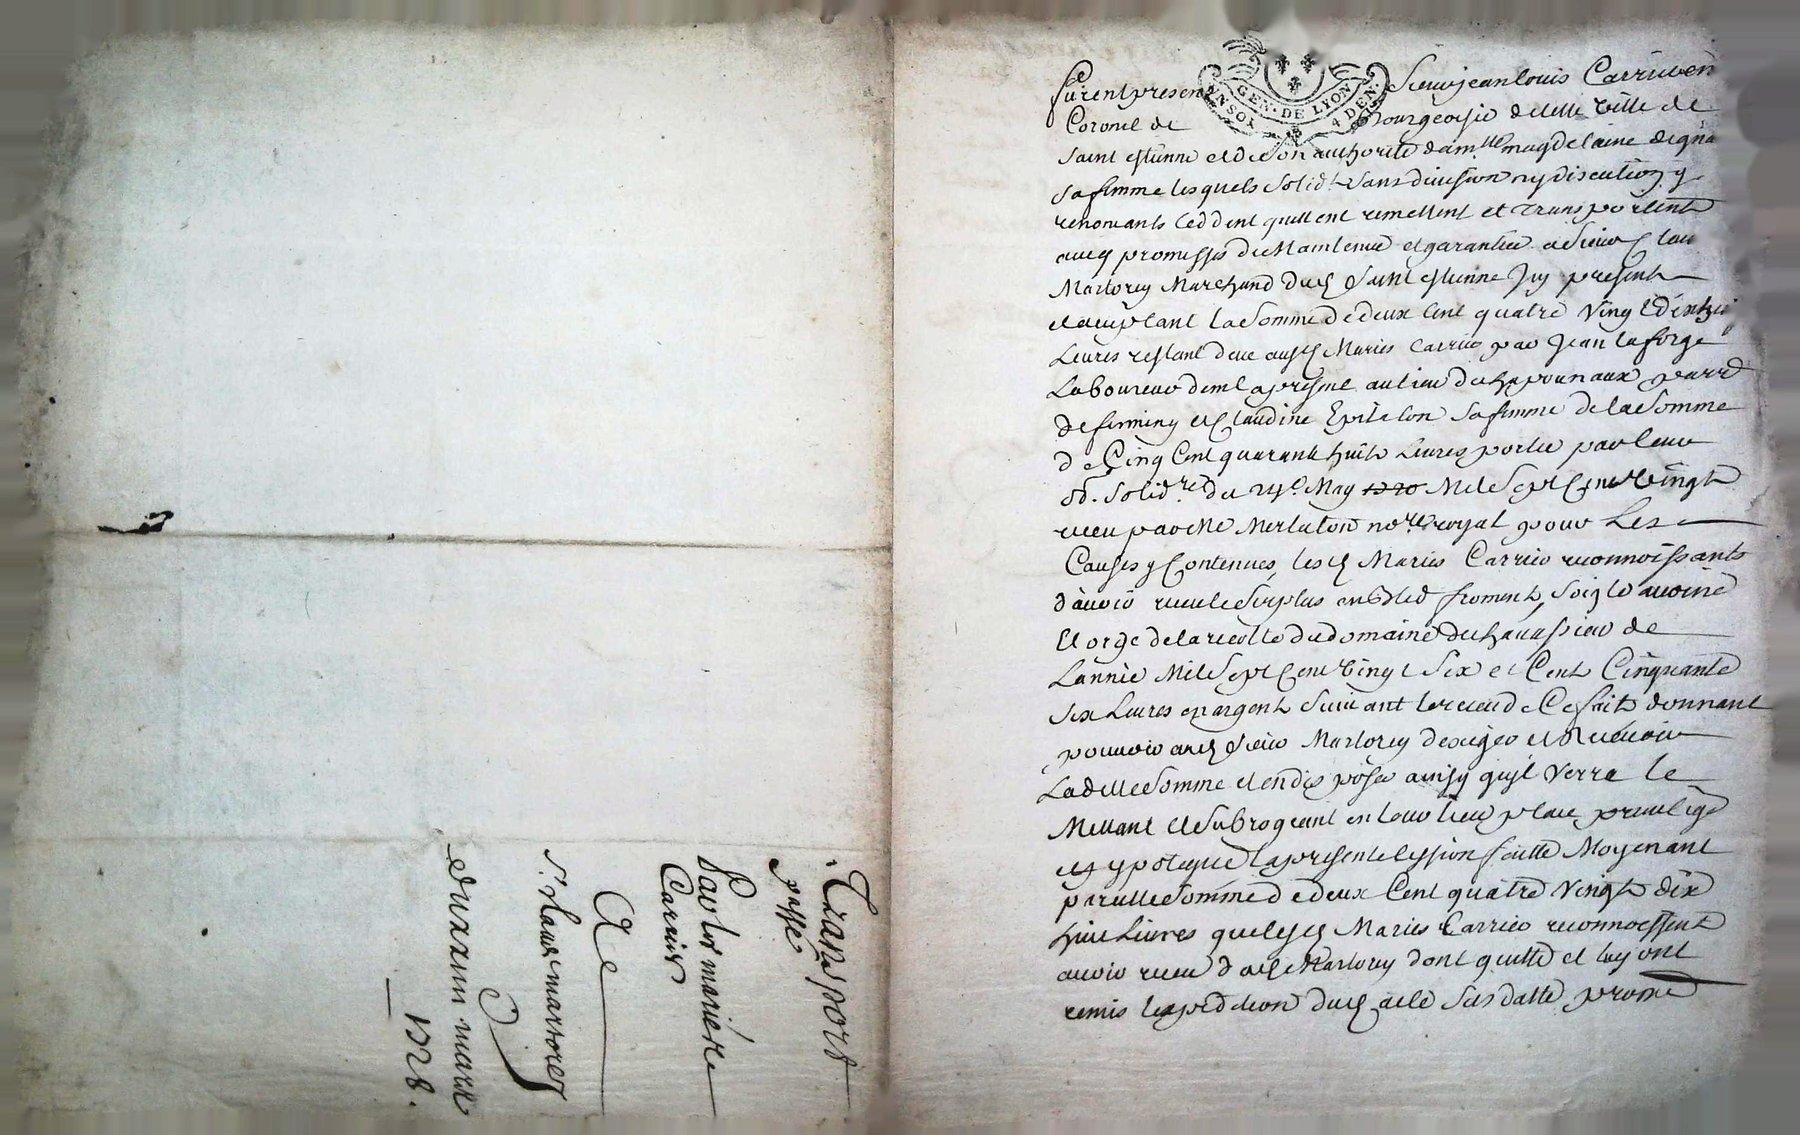 Transport
passé
Par les mariés
Carrier
A
Sr. Claude martorey
du xxiiii mars
1728.
GEN. DE LYON
4 DEN.
furent presents Sieur jean louis Carrier en
Coronel de bourgeoisie de cette ville de
saint estienne et de son authorité damlle magdelaine
sa femme lesquels solidt sans division ny discution y
renoncants ceddent quittent remettent et transportent
avecq promesses de Maintenue et garantie a Sieur Claude
Martorey Marchand dud saint estienne Icy present
et aceptant la somme de deux cent quatre Vingt dixhuit
Livres restant deue ausd Mariés Carrier par Jean laforge
Laboureur demt a present au lieu de parr
de firminy et Claudine Epitalon sa femme de la somme
de Cinq Cent quarante huit Livres portée par leur
ob. solidre du 24e May 1720 Mil Sept Cent Vingt
receu par Me Merlaton nore royal pour Les
Causes y Contenues, lesd Mariés Carrier reconnoissants
d'avoir receu le surplus en bled froment, seigle avoine
et orge de la recolte du domaine du de
Lannée Mil Sept Cent Vingt Six et Cent Cinquante
six Livres en argent suivant le receu de Ce fait donnant
pouvoir aud Sieur Martorey dexiger et Recevoir
Ladite somme et en disposer ainsy quil Verra le
Mettant et subrogeant en tout lieu place privilege
et ypoteque la presente cession faitte Moyenant
pareille somme de deux Cent quatre Vingt dix
huit Livres que lesd Mariés Carrier reconnoissent
avoir receu dud Martorey dont quitte et luy ont
remis lexpedition dud acte sus datté, prome